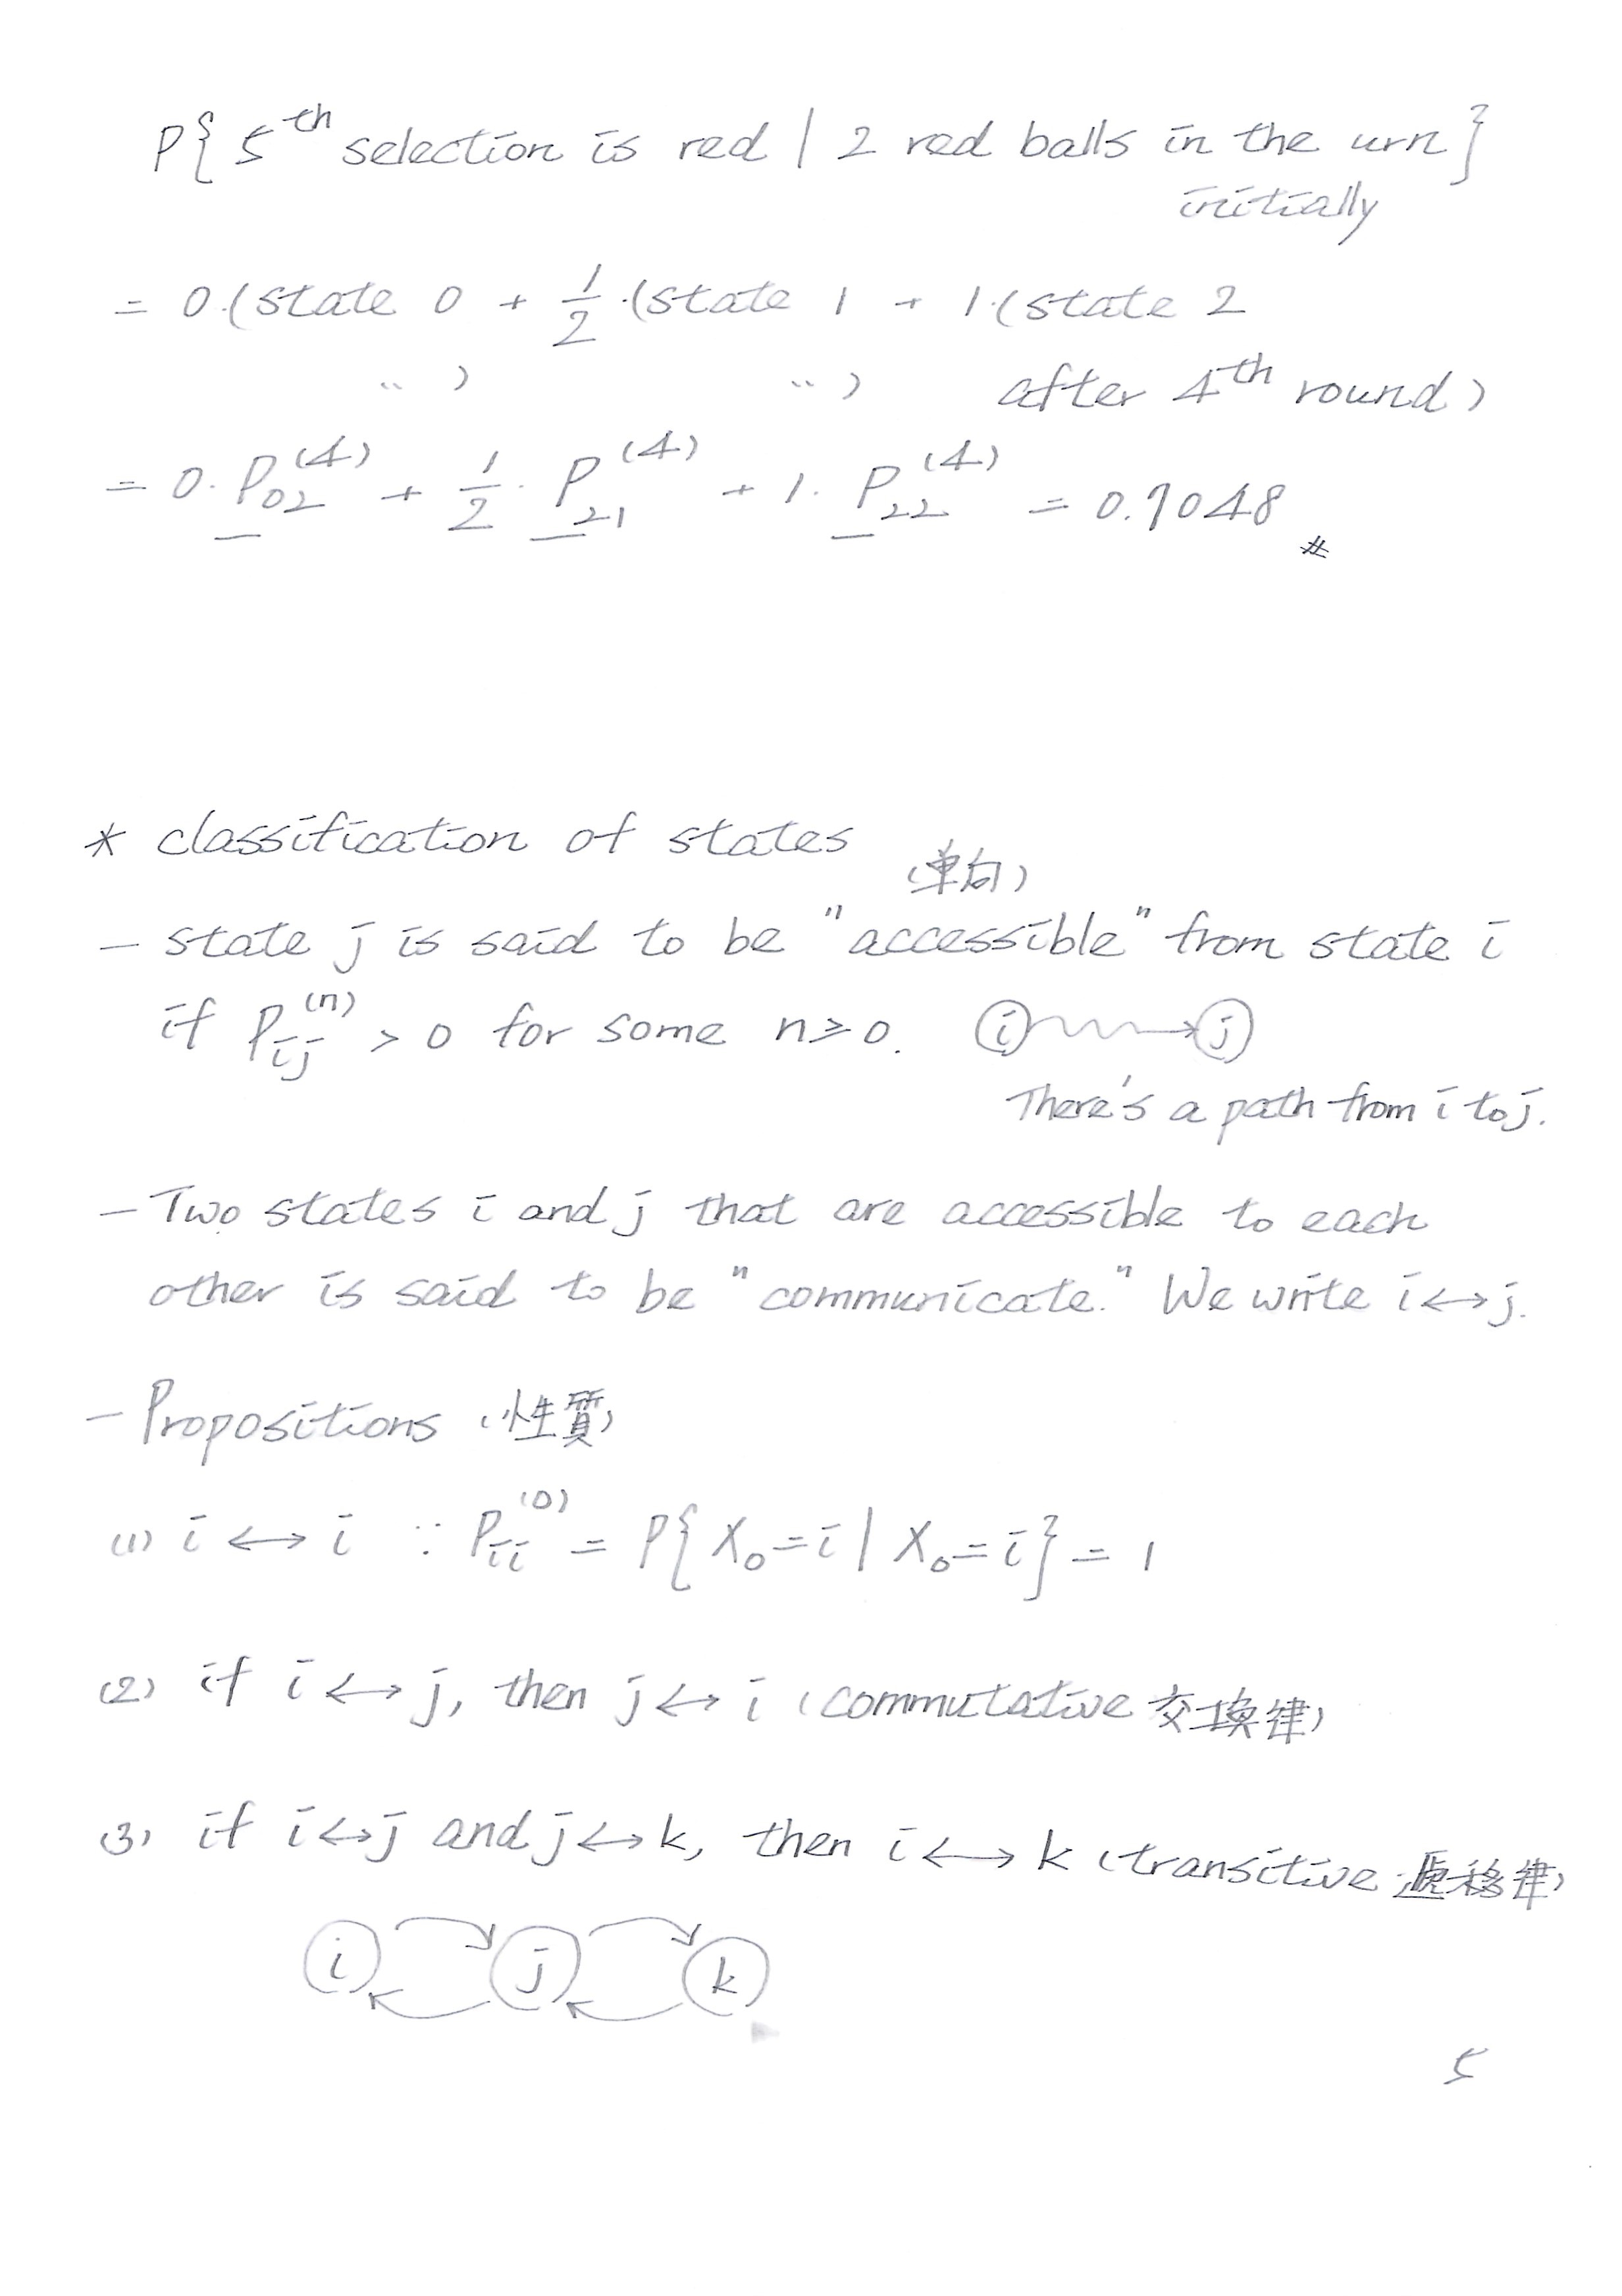 P{ 5th selection is red | 2 red balls in the urn }
initially
= 0·(state 0 + 1/2·(state 1 + 1·(state 2
" ) " ) after 4th round)
= 0·P02^(4) + 1/2·P21^(4) + 1·P22^(4) = 0.7048 #
* classification of states
(單向)
— state j is said to be "accessible" from state i
if Pij^(n) > 0 for some n≥0. i → j
There's a path from i to j.
— Two states i and j that are accessible to each
other is said to be "communicate." We write i↔j.
— Propositions (性質)
(1) i ↔ i ∵ Pii^(0) = P{ X0=i | X0=i } = 1
(2) if i ↔ j, then j ↔ i (commutative 交換律)
(3) if i↔j and j↔k, then i ↔ k (transitive 遞移律)
i j k
5